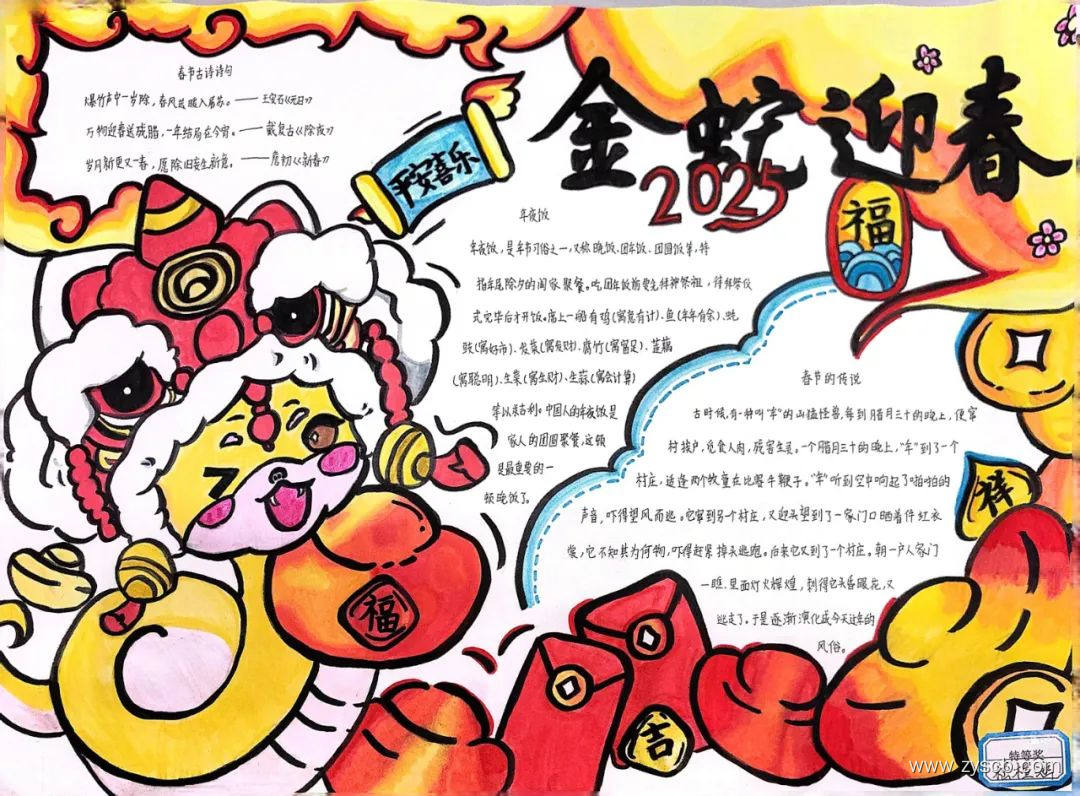 金蛇迎春
2025
福
平安喜乐
春节古诗诗句
爆竹声中一岁除，春风送暖入屠苏。——王安石《元日》
万物迎春送残腊，一年结局在今宵。——戴复古《除夜》
岁月新更又一春，愿除旧妄生新意。——詹初《新春》
年夜饭
年夜饭，是年节习俗之一，又称晚饭、团年饭、团圆饭等，特
指年尾除夕的阖家聚餐。吃团年饭前要先拜神祭祖，待拜祭仪
式完毕后才开饭。席上一般有鸡(寓意有计)、鱼(年年有余)、蚝
豉(寓好市)、发菜(寓发财)、腐竹(寓富足)、莲藕
(寓聪明)、生菜(寓生财)、生蒜(寓会计算)
等以求吉利。中国人的年夜饭是
家人的团圆聚餐，这顿
是最重要的一
顿晚饭了。
春节的传说
古时候，有一种叫"年"的凶猛怪兽，每到腊月三十的晚上，便窜
村挨户，觅食人肉，残害生灵。一个腊月三十的晚上，"年"到了一个
村庄，适逢两个牧童在比赛牛鞭子。"年"听到空中响起了啪啪的
声音，吓得望风而逃。它窜到另个村庄，又迎头望到了一家门口晒着件红衣
裳，它不知其为何物，吓得赶紧掉头逃跑。后来它又到了一个村庄。朝一户人家门
一瞧，里面灯火辉煌，刺得它头昏眼花，又
逃走了。于是逐渐演化成今天过年的
风俗。
祥
福
吉
特等奖
www.zyscb.com